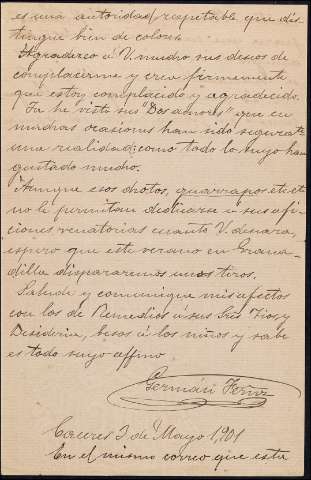 es una autoridad respetable que dis-
tingue bien de colores.
Agradezco á V. mucho sus deseos de
complacerme y crea firmemente
que estoy complacido y agradecido.
Ya he visto sus "Dos amores" que en
muchas ocasiones han sido seguramte
una realidad; como todo lo suyo han
gustado mucho.
Aunque esos chotos, guarrapos, etc. etc.
no le permitan dedicarse á sus afi-
ciones venatorias cuanto V. deseara,
espero que este verano en Grana-
dilla dispararemos unos tiros.
Salude y comunique mis afectos
con los de Remedios á sus Sres Tios y
Desideria, besos á los niños y sabe
es todo suyo affmo
Germán Fernz
Cáceres 3 de Mayo 1,901
En el mismo correo que esta